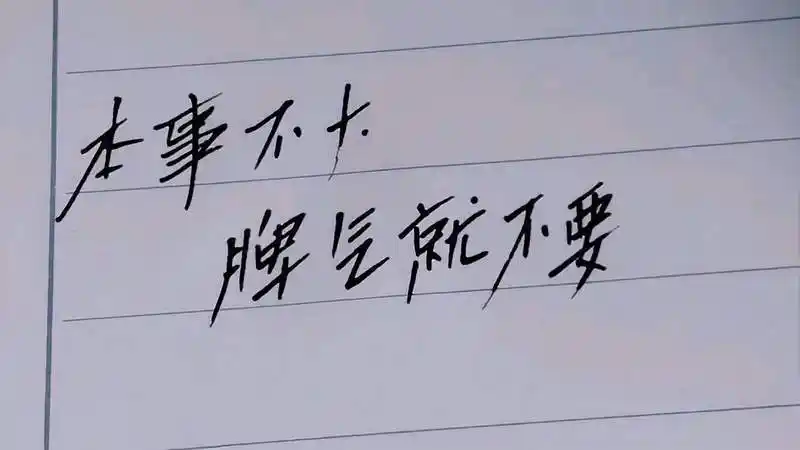 本事不大
脾气就不要